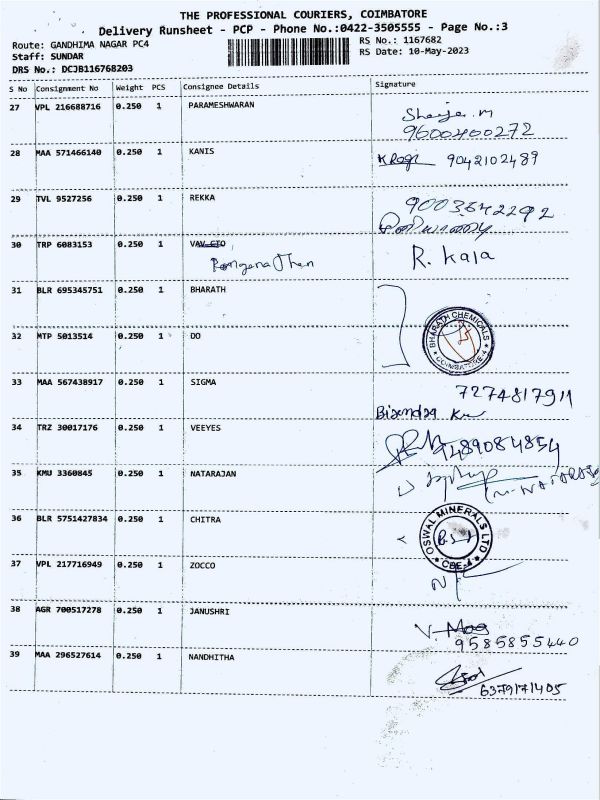 THE PROFESSIONAL COURIERS, COIMBATORE
Delivery Runsheet - PCP - Phone No.:0422-3505555 - Page No.:3
Route: GANDHIMA NAGAR PC4
RS No.: 1167682
Staff: SUNDAR
RS Date: 10-May-2023
DRS No.: DCJB116768203
S No Consignment No Weight PCS Consignee Details Signature
27 VPL 216688716 0.250 1 PARAMESHWARAN
9600400272
28 MAA 571466140 0.250 1 KANIS 9042102489
29 TVL 9527256 0.250 1 REKKA 9003642292
30 TRP 6083153 0.250 1 R. Kala
31 BLR 695345751 0.250 1 BHARATH
BHARATH CHEMICALS
COIMBATORE-4
32 MTP 5013514 0.250 1 DO
33 MAA 567438917 0.250 1 SIGMA 7274817911
34 TRZ 30017176 0.250 1 VEEYES 9489084854
35 KMU 3360845 0.250 1 NATARAJAN
36 BLR 5751427834 0.250 1 CHITRA
OSWAL MINERALS LTD
CBE-4
37 VPL 217716949 0.250 1 ZOCCO
38 AGR 700517278 0.250 1 JANUSHRI
9585855440
39 MAA 296527614 0.250 1 NANDHITHA
6379171405